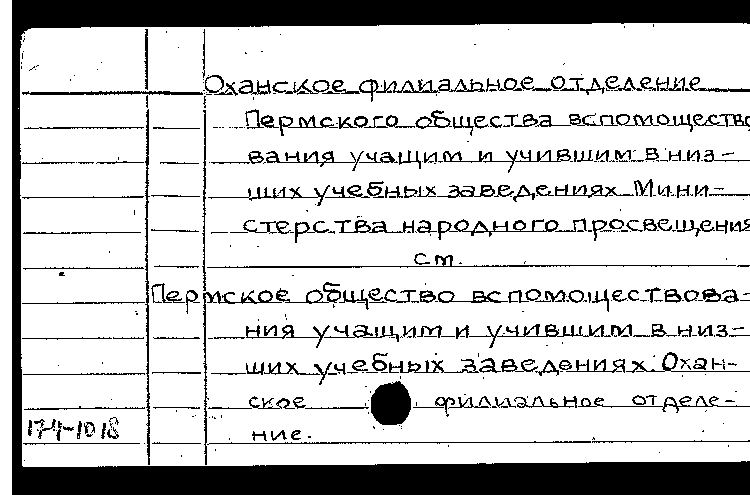 Оханское филиальное отделение
Пермского общества вспомощество
вания учащим и учившим в низ-
ших учебных заведениях Мини-
стерства народного просвещения
см.
Пермское общество вспомоществова-
ния учащим и учившим в низ-
ших учебных заведениях. Охан-
ское филиальное отделе-
174-1018 ние.